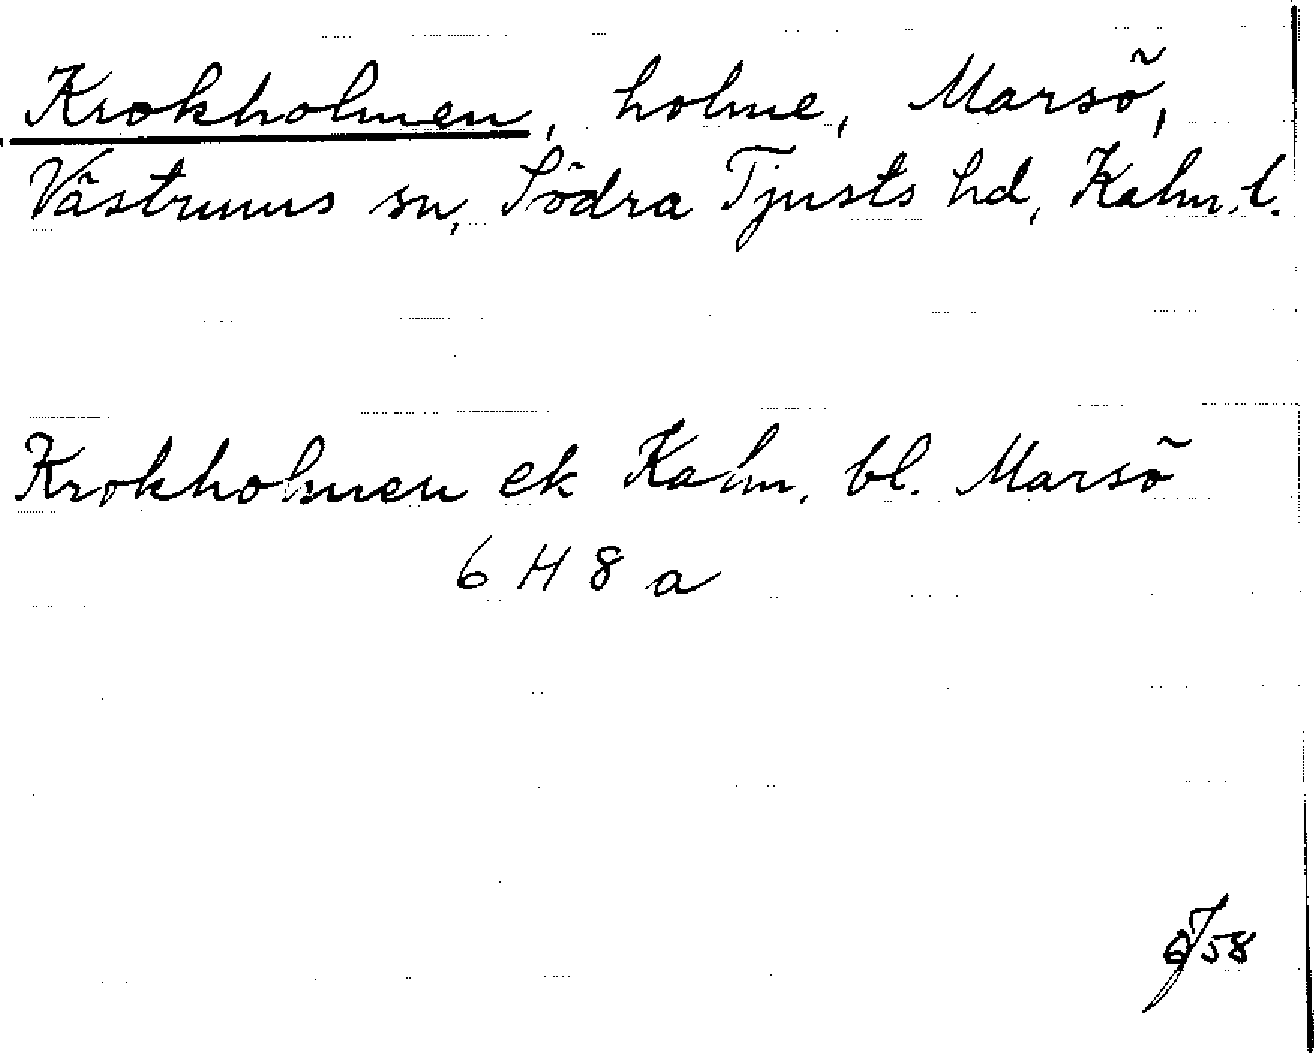 Krokholmen, holme, Marsö,
Västrums sn, Södra Tjusts hd, Kalm. l.
Krokholmen ek Kalm. bl. Marsö
6 H 8 a